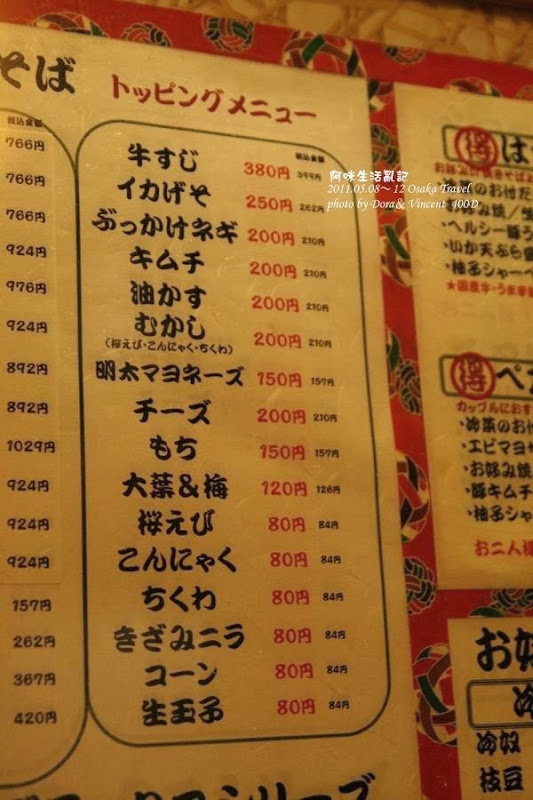 そば
税込金額
766円
766円
766円
924円
976円
924円
892円
892円
1029円
924円
924円
924円
157円
262円
367円
420円
トッピングメニュー
税込金額
牛すじ 380円 399円
イカげそ 250円 262円
ぶっかけネギ 200円 210円
キムチ 200円 210円
油かす 200円 210円
むかし 200円 210円
(桜えび・こんにゃく・ちくわ)
明太マヨネーズ 150円 157円
チーズ 200円 210円
もち 150円 157円
大葉&梅 120円 126円
桜えび 80円 84円
こんにゃく 80円 84円
ちくわ 80円 84円
きざみニラ 80円 84円
コーン 80円 84円
生玉子 80円 84円
阿咪生活亂記
2011.05.08～12 Osaka Travel
photo by Dora & Vincent 400D
得 は
・ヘルシー豚う
・いか天ぷら盛
・柚子シャーベ
★国産牛・うま辛
得 ペ
カップルにおす
・冷菜のお付
・エビマヨサ
・お好み焼
・豚キムチ
・柚子シャ
お二人様
お好
冷
冷奴
枝豆
シリーズ